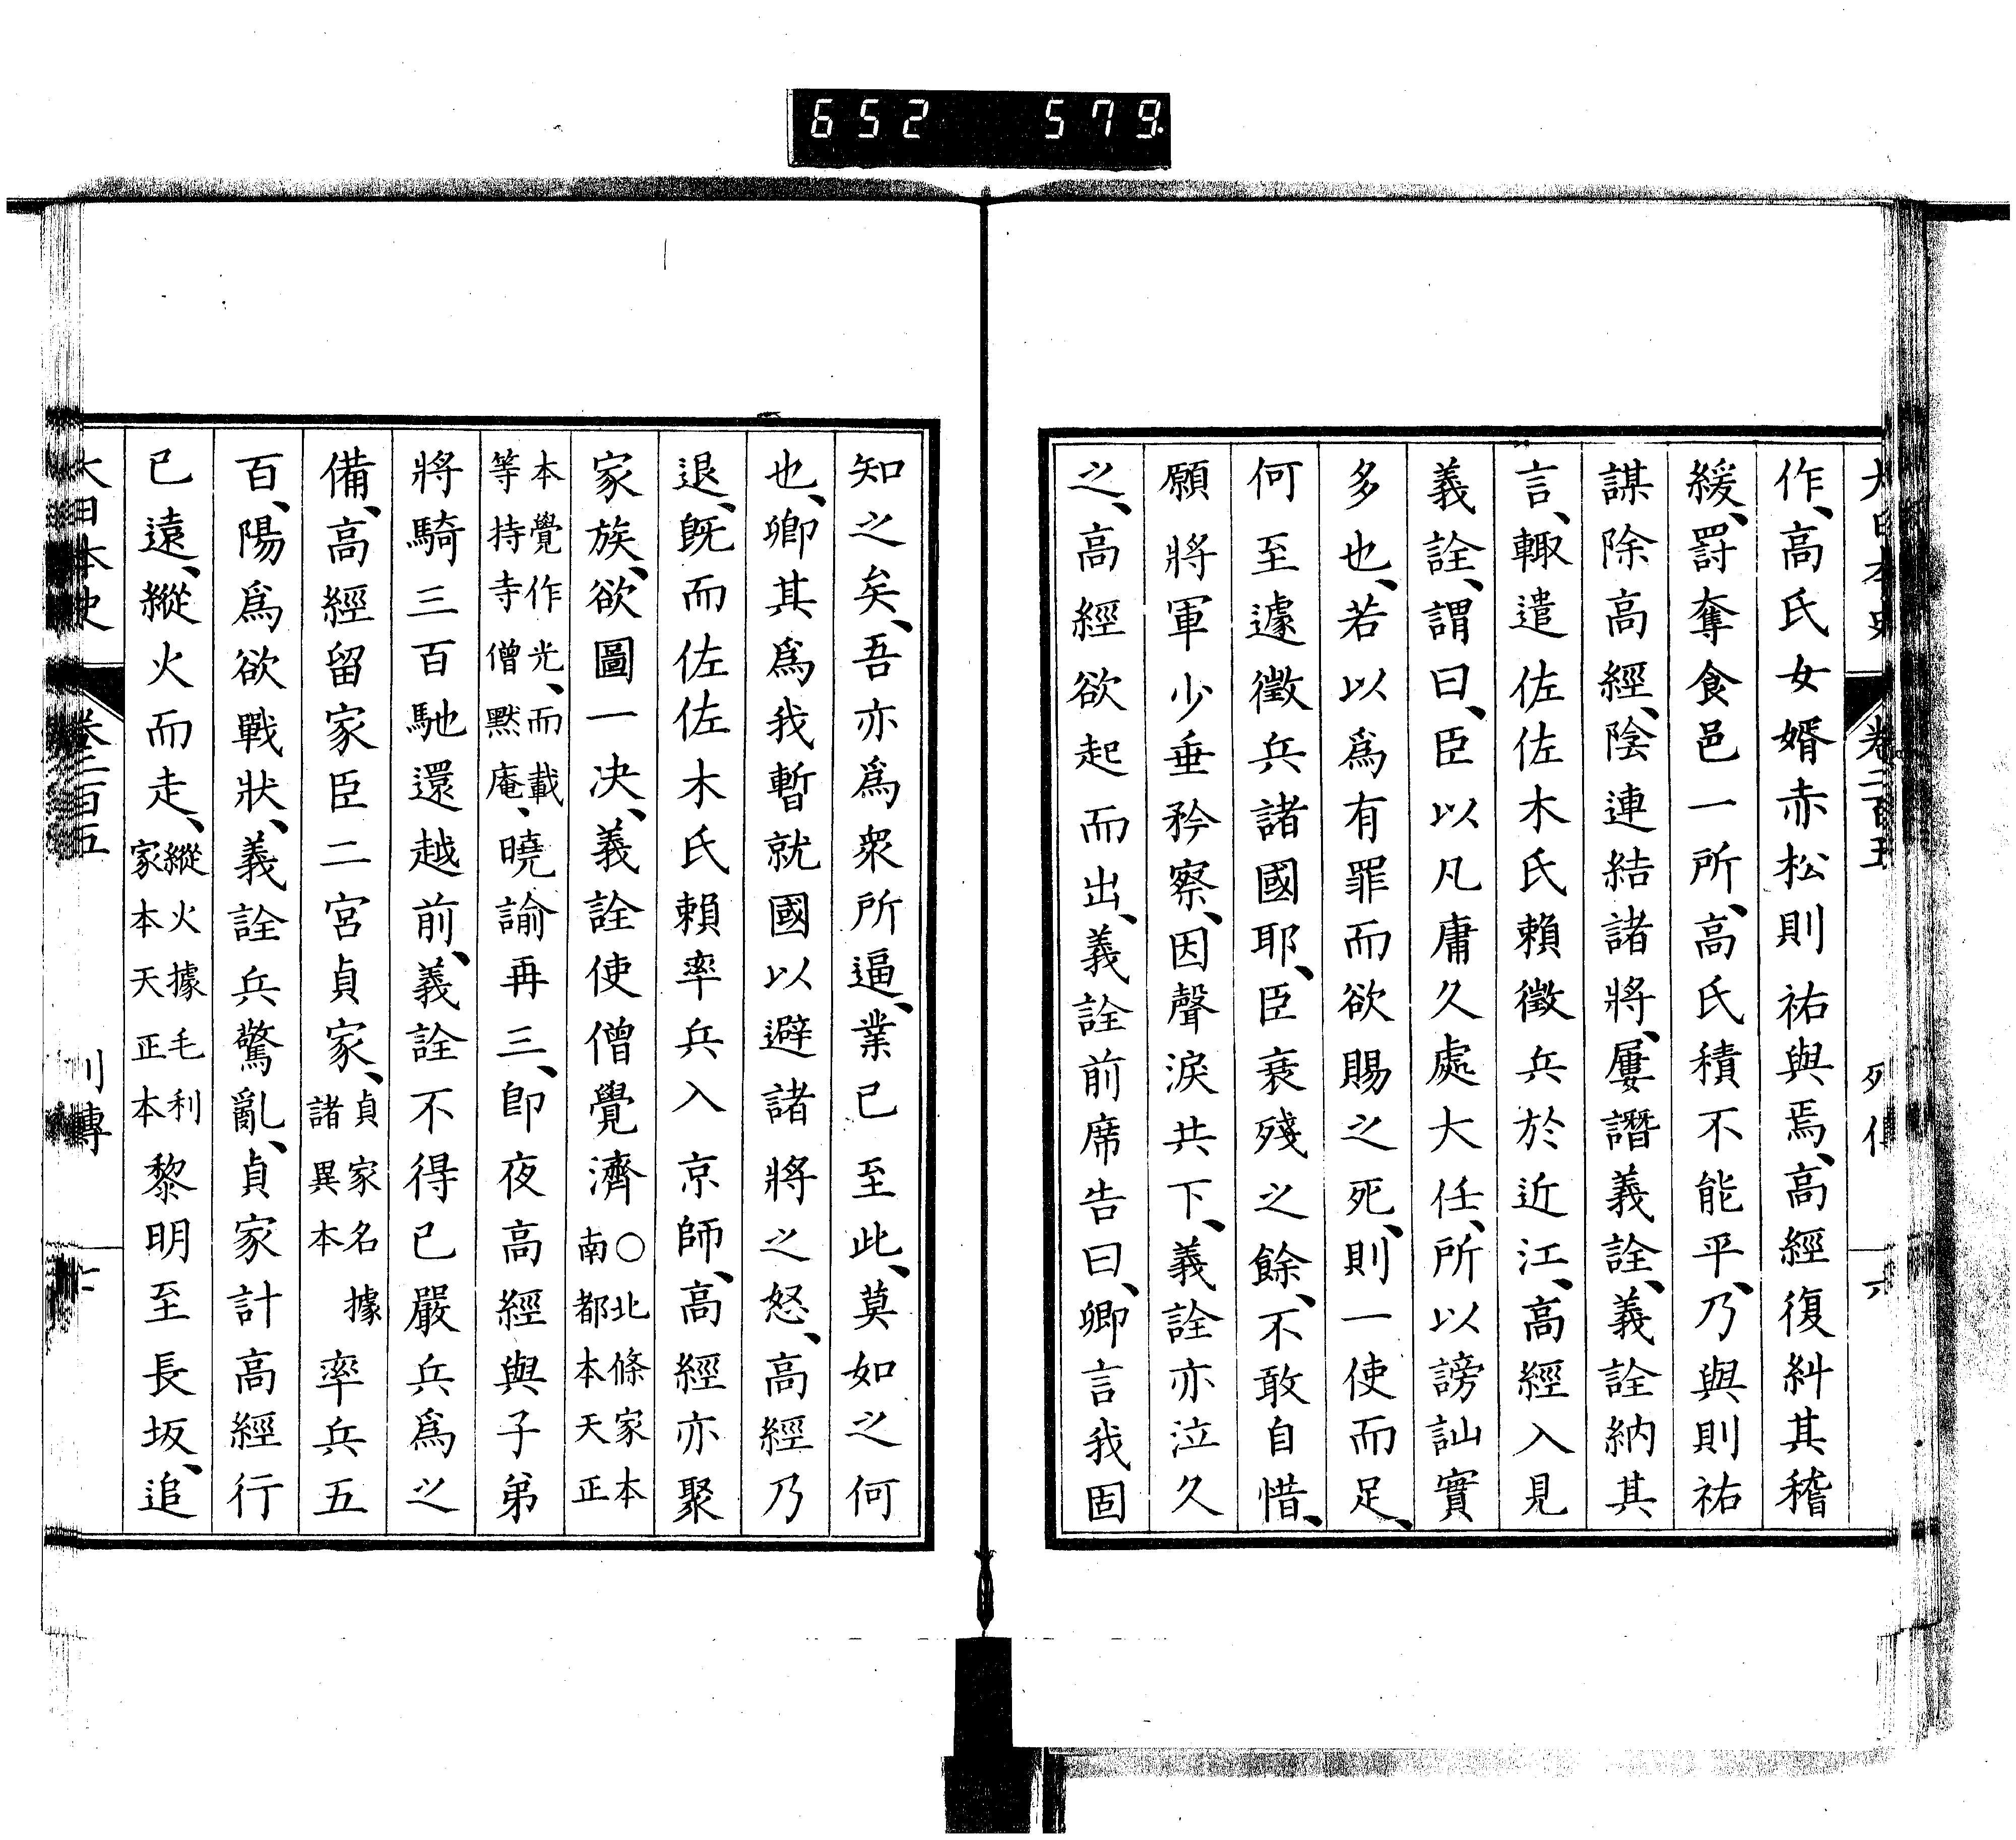 652 579.
大日本史 卷二百五 列傳 六
作、高氏女婿赤松則祐與焉、高經復糾其稽
緩、罸奪食邑一所、高氏積不能平、乃與則祐
謀除高經、陰連結諸將、屢譖義詮、義詮納其
言、輙遣佐佐木氏賴徵兵於近江、高經入見
義詮、謂曰、臣以凡庸久處大任、所以謗訕實
多也、若以爲有罪而欲賜之死、則一使而足、
何至遽徵兵諸國耶、臣衰殘之餘、不敢自惜、
願將軍少垂矜察、因聲淚共下、義詮亦泣久
之、高經欲起而出、義詮前席告曰、卿言我固
知之矣、吾亦爲衆所逼、業已至此、莫如之何
也、卿其爲我暫就國以避諸將之怒、高經乃
退、既而佐佐木氏賴率兵入京師、高經亦聚
家族、欲圖一决、義詮使僧覺濟○北條家本南都本天正
本覺作光、而載等持寺僧默庵、曉諭再三、卽夜高經與子弟
將騎三百馳還越前、義詮不得已嚴兵爲之
備、高經留家臣二宮貞家、貞家名據諸異本率兵五
百、陽爲欲戰狀、義詮兵驚亂、貞家計高經行
已遠、縱火而走、縱火據毛利家本天正本黎明至長坂、追
大日本史 卷二百五 列傳